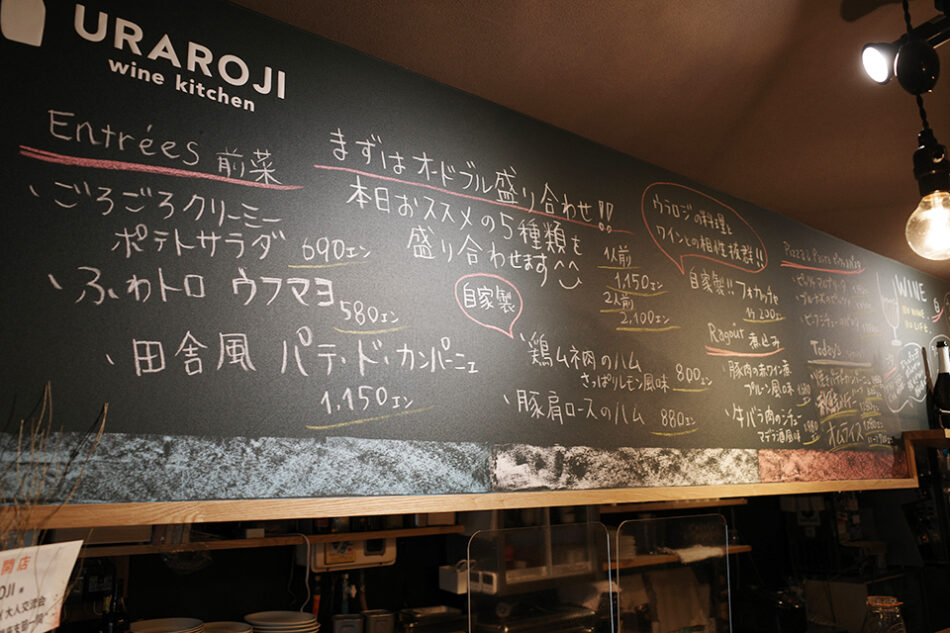 URAROJI
wine kitchen
Entrées 前菜
、ごろごろクリーミー
ポテトサラダ 690エン
、ふわトロ ウフマヨ
580エン
、田舎風 パテ・ド・カンパーニュ
1,150エン
まずはオードブル盛り合わせ!!
本日おススメの5種類を
盛り合わせます^^
1人前
1,150エン
2人前
2,100エン
自家製
、鶏ムネ肉のハム
さっぱりレモン風味 800エン
、豚肩ロースのハム 880エン
ウラロジの料理と
ワインとの相性抜群!!
自家製!! フォカッチャ
200エン
Ragout 煮込み
、豚肉の赤ワイン煮
プルーン風味
、牛バラ肉のシチュー
マデラ酒風味
Today's
オムライス
WINE
NO WINE
NO LIFE
開店
OJI
大人交流会